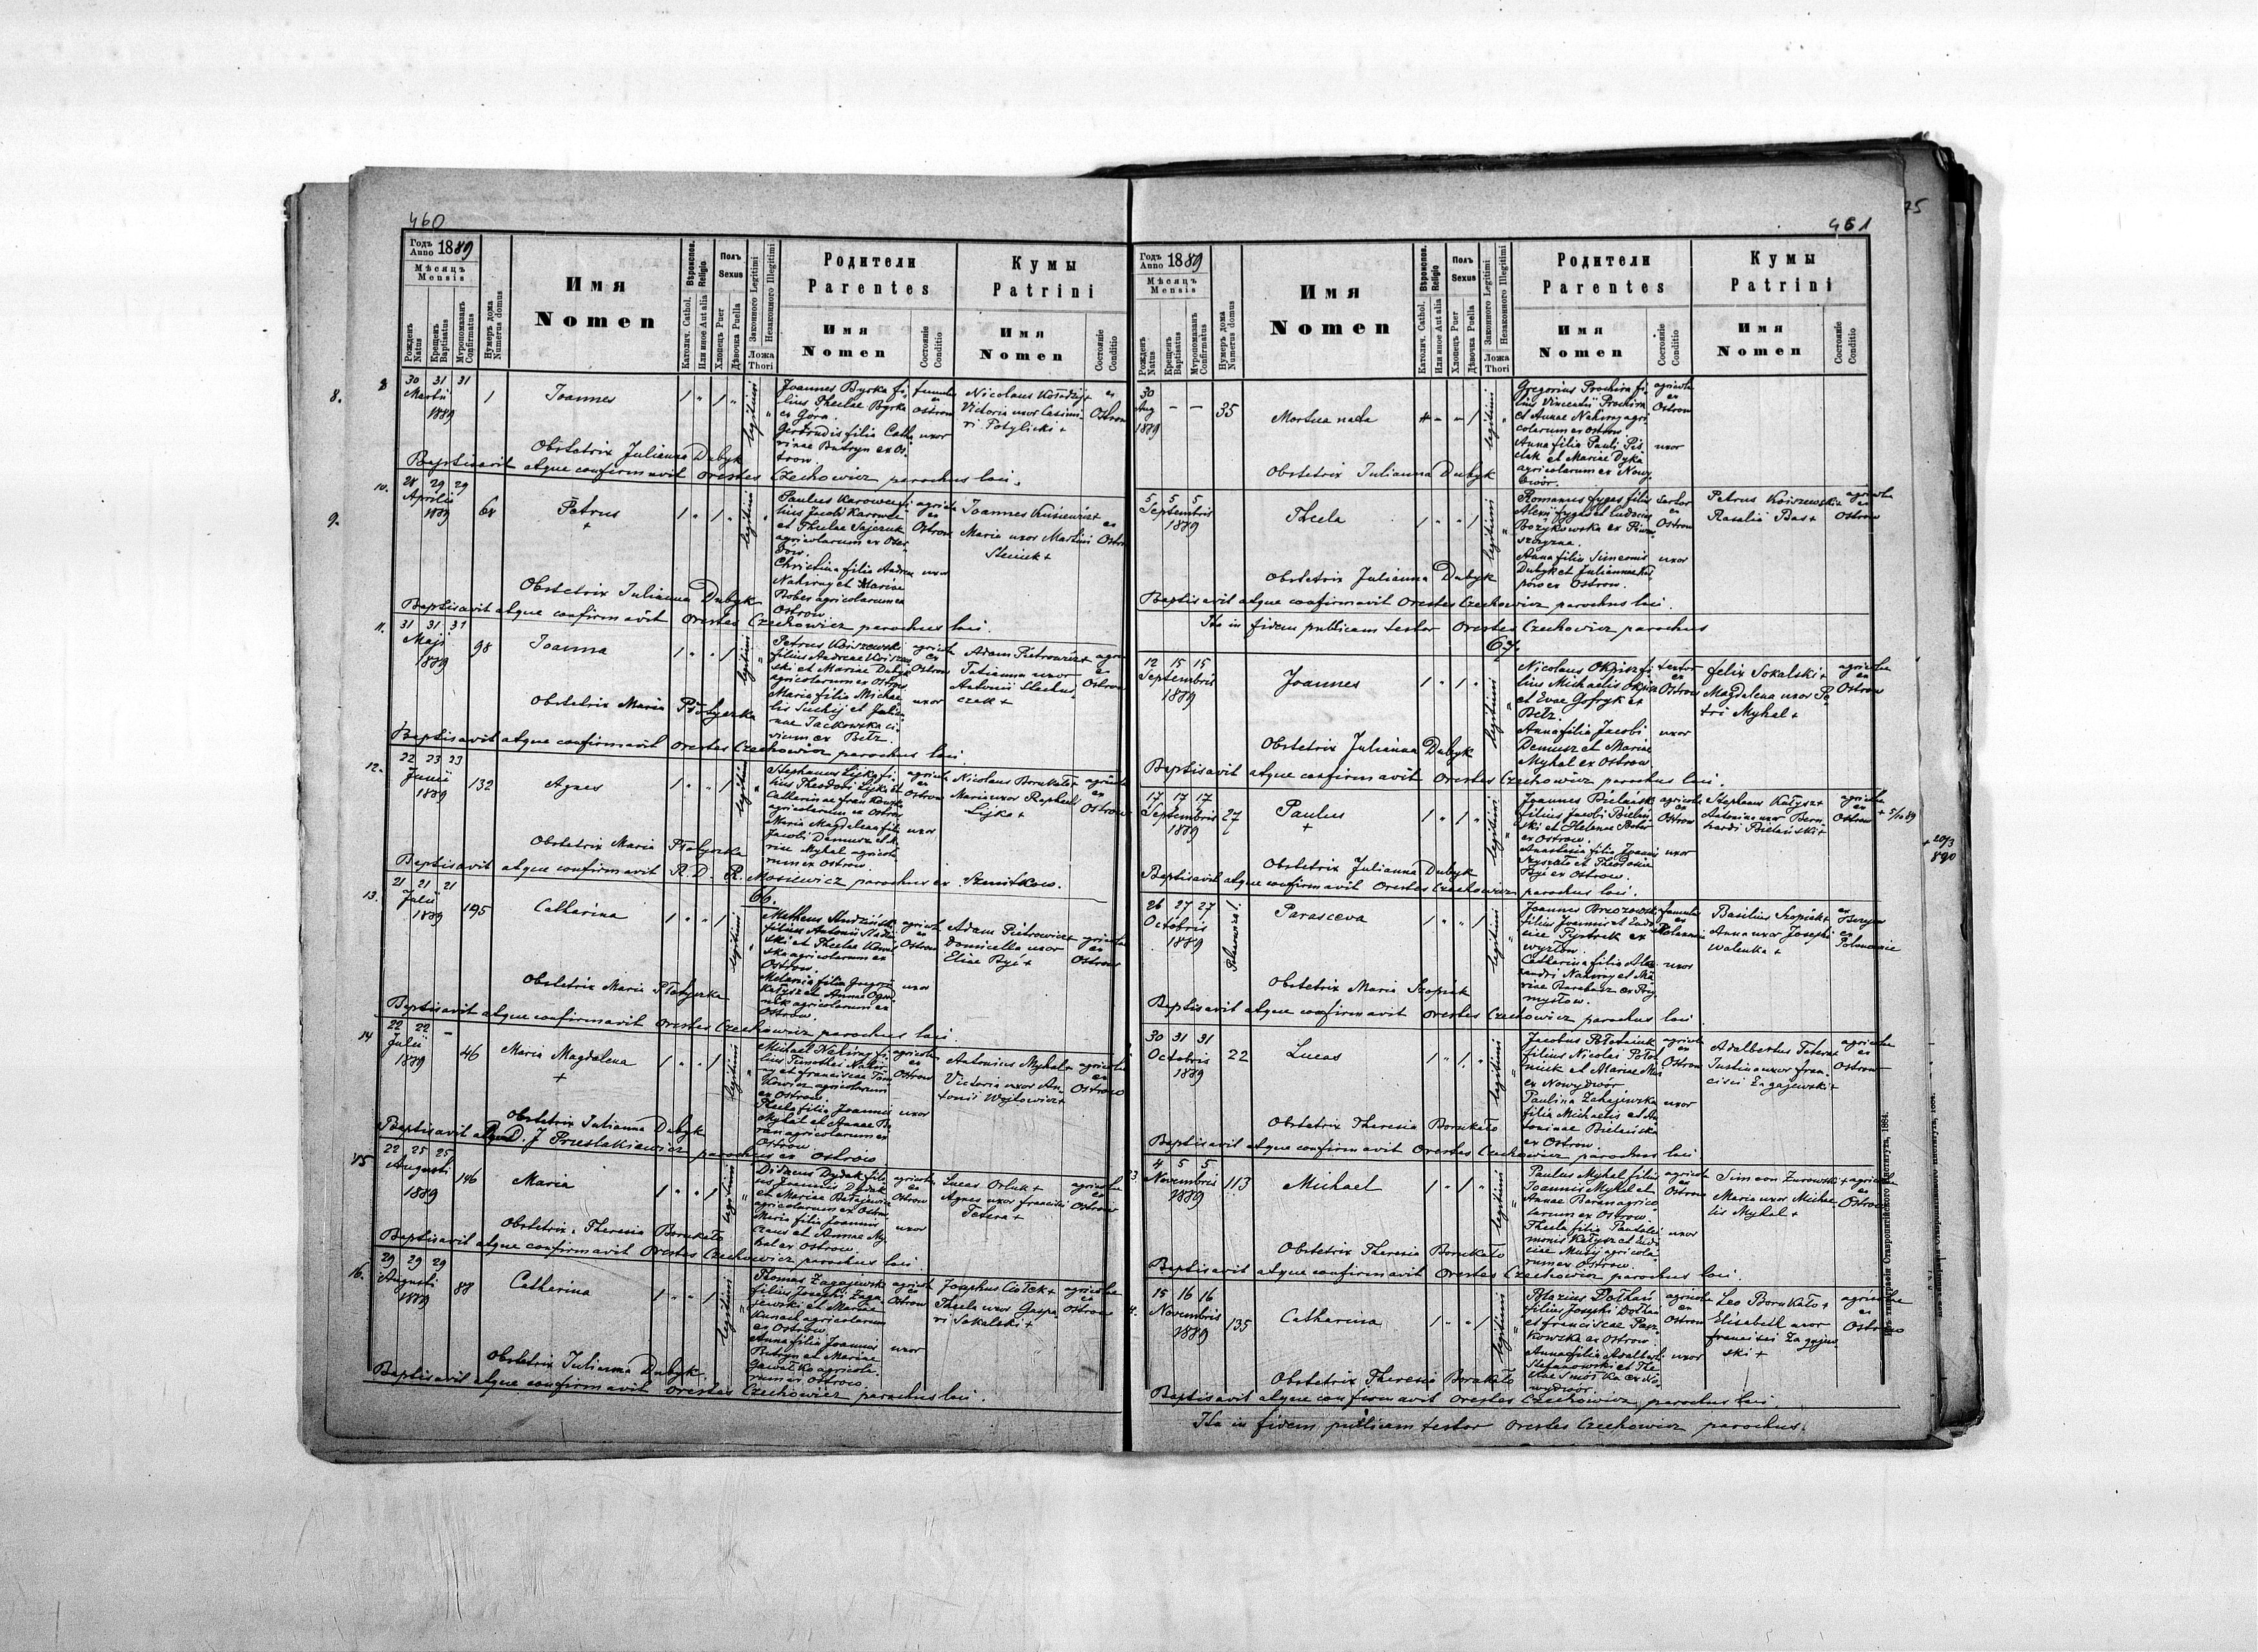 460
Годъ Anno 1889
Мѣсяцъ Mensis
Рожденъ Natus
Крещенъ Baptisatus
Мѵропомазанъ Confirmatus
Нумеръ дома Numerus domus
Имя
Nomen
Вѣроиспов. Religio
Католич. Cathol.
Или иное Aut alia
Полъ Sexus
Хлопецъ Puer
Дѣвочка Puella
Законного Legitimi
Незаконного Illegitimi
Ложа Thori
Родители
Parentes
Имя
Nomen
Состояніе Conditio
Кумы
Patrini
Имя
Nomen
Состояніе Conditio
8. 30 31 31
Martii
1889
1 Joannes
legitimi
Joannes Byrka fi-
lius Theclae Byrka
ex Góra
Gertrudis filia Catha
rinae Butryn ex Os-
trow.
famulus ex Ostrow
uxor
Nicolaus
Victoria uxor Casimi-
ri Potylicki +
ex Ostrow
Obstetrix Julianna Dubyk
Baptisavit atque confirmavit Orestes Czechowicz parochus loci.
10.
9. 28 29 29
Aprilis
1889
Petrus
+
legitimi
agricolarum ex
Christina filia Andreae
Nahirny et Mariae
Bober agricolarum ex
Ostrow
agricola ex Ostrow
uxor
Joannes
Maria uxor Martini
ex Ostrow
Obstetrix Julianna Dubyk
Baptisavit atque confirmavit Orestes Czechowicz parochus loci.
11. 31 31 31
Maji
1889
98 Joanna
legitimi
Petrus Koiszewski
filius Andreae
ski et Mariae Dubyk
agricolarum ex Ostrow
Maria filia Michae
lis Suchij et Julian
nae Jackowska ci-
vium ex Bełz.
agricola ex Ostrow
uxor
Adam Pietrowicz +
Tatianna uxor
Antonii
czak +
agricola ex Ostrow
Obstetrix Maria
Baptisavit atque confirmavit Orestes Czechowicz parochus loci
12. 22 23 23
Junii
1889
132 Agnes
legitimi
Stephanus Lijka fi-
lius Theodori Lijka et
Catharinae
agricolarum ex Ostrow
Maria Magdalena filia
Jacobi Demusz et Ma
riae Mykal agricola
rum ex Ostrow
agricola ex Ostrow
uxor
Nicolaus Borukało +
Maria uxor Raphaeli
Lijka +
agricola ex Ostrow
Obstetrix Maria
Baptisavit atque confirmavit R. D. R. Mosiewicz parochus ex Szmitkow.
66.
13. 21 21 21
Julii
1889
195 Catharina
legitimi
agricolarum ex
Ostrow.
Melania filia Gregorii
Kałysz et Annae
agricolarum ex
Ostrow.
agricola ex Ostrow
uxor
Adam Pietrowicz +
Domicella uxor
Eliae Byi +
agricola ex Ostrow
Obstetrix Maria
Baptisavit atque confirmavit Orestes Czechowicz parochus loci.
14 22 22 -
Julii
1889
46 Maria Magdalena
+
legitimi
Michael Nahirny fi-
lius Timothei Nahir
ny et Franciscae Tom
kowicz agricolarum
ex Ostrow.
Thecla filia Joannis
Mykal et Annae Ba
ran agricolarum ex
Ostrow
agricola ex Ostrow
uxor
Antonius Mykal +
Victoria uxor An-
tonii Wojtowicz +
agricola ex Ostrow
Obstetrix Julianna Dubyk
Baptisavit R. D. J. Przesłakiewicz parochus ex Ostrów
15 22 25 25
Augusti
1889
146 Maria
legitimi
Didacus Dydak fili-
us Joannis Dydak
et Mariae
agricolarum ex Ostrow
Maria filia Joannis
et Annae My-
kal ex Ostrow.
agricola ex Ostrow
uxor
Lucas Orluk +
Agnes uxor Francisci
Tetera +
agricola ex Ostrow
Obstetrix Theresia Borukało
Baptisavit atque confirmavit Orestes Czechowicz parochus loci.
16. 29 29 29
Augusti
1889
88 Catharina
legitimi
Thomas Zagajewski
filius Josephi Zaga
jewski et Mariae
Kunach agricolarum
ex Ostrow.
Anna filia Joannis
Butryn et Mariae
Gawałko agricola-
rum ex Ostrow
agricola ex Ostrow
uxor
Josephus Ciołek +
Thecla uxor Gaspa-
ri Sokalski +
agricola ex Ostrow
Obstetrix Julianna Dubyk.
Baptisavit atque confirmavit Orestes Czechowicz parochus loci.
461
75
Годъ Anno 1889
Мѣсяцъ Mensis
Рожденъ Natus
Крещенъ Baptisatus
Мѵропомазанъ Confirmatus
Нумеръ дома Numerus domus
Имя
Nomen
Вѣроиспов. Religio
Католич. Cathol.
Или иное Aut alia
Полъ Sexus
Хлопецъ Puer
Дѣвочка Puella
Законного Legitimi
Незаконного Illegitimi
Ложа Thori
Родители
Parentes
Имя
Nomen
Состояніе Conditio
Кумы
Patrini
Имя
Nomen
Состояніе Conditio
30 - -
Aug
1889
35 Mortua nata
legitimi
Gregorius Prochira fi-
lius Vincentii Prochira
et Annae Nahirny agri
colarum ex Ostrow
Anna filia Pauli
et Mariae Dyka
agricolarum ex Nowy
dwór.
agricola ex Ostrow
uxor
Obstetrix Julianna Dubyk
5 5 5
Septembris
1889
Thecla
legitimi
Romanus Fyges filius
Alexii Fyges et Ludovicae
Bożykowska ex
Anna filia Simeonis
Dubyk et Juliannae
ex Ostrow.
sartor ex Ostrow
uxor
Petrus Koiszewski +
Rosalia Bas +
agricola ex Ostrow
Obstetrix Julianna Dubyk
Baptisavit atque confirmavit Orestes Czechowicz parochus loci.
Ita in fidem publicam testor Orestes Czechowicz parochus
67.
12 15 15
Septembris
1889
Joannes
legitimi
Nicolaus Okpisz fi-
lius Michaelis Okpisz
et Evae Gofryk ex
Bełz.
Anna filia Jacobi
Demusz et Mariae
Mykal ex Ostrow
textor ex Ostrow
uxor
Felix Sokalski +
Magdalena uxor Pe
tri Mykal +
agricola ex Ostrow
Obstetrix Julianna Dubyk
Baptisavit atque confirmavit Orestes Czechowicz parochus loci.
17 17 17
Septembris
1889
27 Paulus
+
legitimi
Joannes Bielański
filius Jacobi Bielań
ski et Helenae Bober
ex Ostrow.
Anastasia filia Joannis
et Theodosiae
Byi ex Ostrow.
agricola ex Ostrow
uxor
Stephanus Kałysz +
Antonina uxor Bern-
hardi Bielański +
agricola ex Ostrow
+ 20/3
890
Obstetrix Julianna Dubyk
Baptisavit atque confirmavit Orestes Czechowicz parochus loci.
26 27 27
Octobris
1889
Parasceva
legitimi
Joannes Brzozowski
filius Joannis et Eudo
ciae Pystrak ex
Catharina filia Ale-
xandri Nahirny et Ma
riae Barabasz ex Pry
mysłow.
famulus ex
uxor
Basilius Szopiak +
Anna uxor Josephi
Walenka +
Obstetrix Maria Szopiak
Baptisavit atque confirmavit Orestes Czechowicz parochus loci
30 31 31
Octobris
1889
22 Lucas
legitimi
Jacobus Połotniuk
filius Nicolai Połot
niuk et Mariae
ex Nowydwór
Paulina Zahajewska
filia Michaelis et An
toninae Bielańska
ex Ostrow.
agricola ex Ostrow
uxor
Adalbertus Tetera +
Justina uxor Fran-
cisci Zagajewski +
agricola ex Ostrow
Obstetrix Theresia Borukało
Baptisavit atque confirmavit Orestes Czechowicz parochus loci
4 5 5
Novembris
1889
113 Michael
legitimi
Paulus Mykal filius
Joannis Mykal et
Annae Baran agrico
larum ex Ostrow
Thecla filia Pantelei
monis Kałysz et Eudo
ciae agricola
rum ex Ostrow.
agricola ex Ostrow
uxor
Simeon Żurowski +
Maria uxor Michae-
lis Mykal +
agricola ex Ostrow
Obstetrix Theresia Borukało
Baptisavit atque confirmavit Orestes Czechowicz parochus loci.
15 16 16
Novembris
1889
135 Catharina
legitimi
Blazius Dołhań
filius Josephi Dołhań
et Franciscae Pasz-
kowska ex Ostrow
Anna filia Adalberti
Stefanowski et The-
clae ex No-
wydwór.
agricola ex Ostrow
uxor
Leo Borukało +
Elisabeth uxor
Francisci Zagajew-
ski +
agricola ex Ostrow
Obstetrix Theresia Borukało
Baptisavit atque confirmavit Orestes Czechowicz parochus loci
Ita in fidem publicam testor Orestes Czechowicz parochus.
Изъ типографіи Ставропигійского Института, 1884.